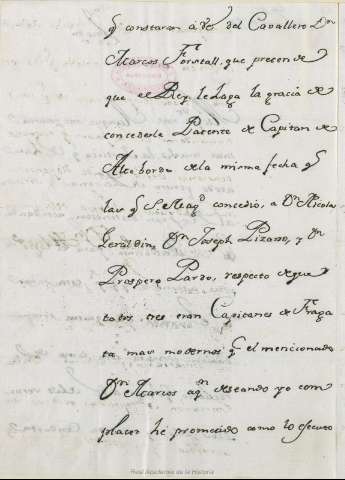 q̃ constaran à Vê del Cavallero Dn
Marcos Forstall, que pretende
que el Rey le haga la gracia de
concederle Patente de Capitan de
Alto bordo de la misma fecha q̃
las q̃ S. Magd concedio, a Dn Nicolas
Geraldin, Dn Joseph Pizarro, y Dn
Prospero Pardo, respecto de que
estos tres eran Capitanes de Fraga
ta mas modernos q̃ el mencionado
Dn Marcos aqn deseando yo com
placer he prometido como lo executo
Real Academia de la Historia